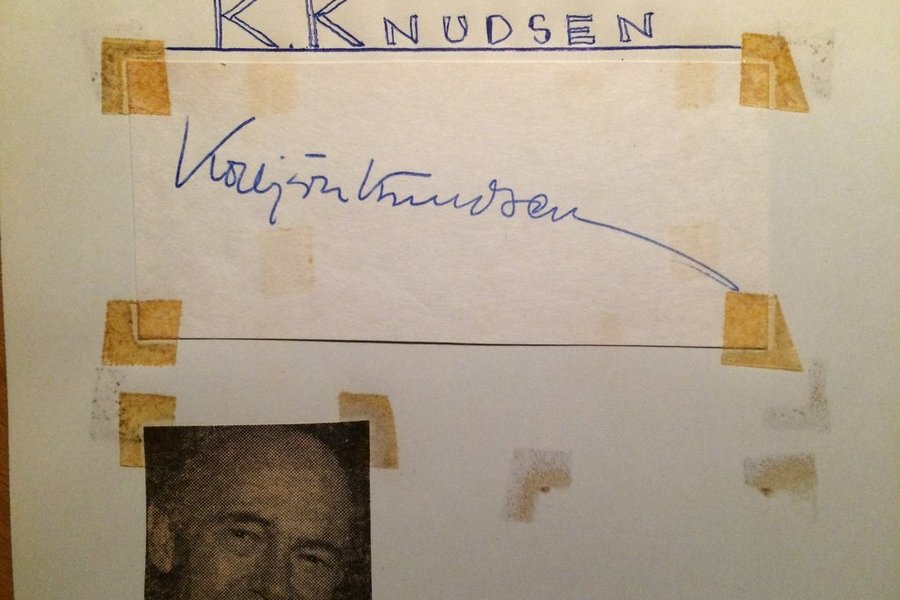 K. KNUDSEN
Kolbjörn Knudsen